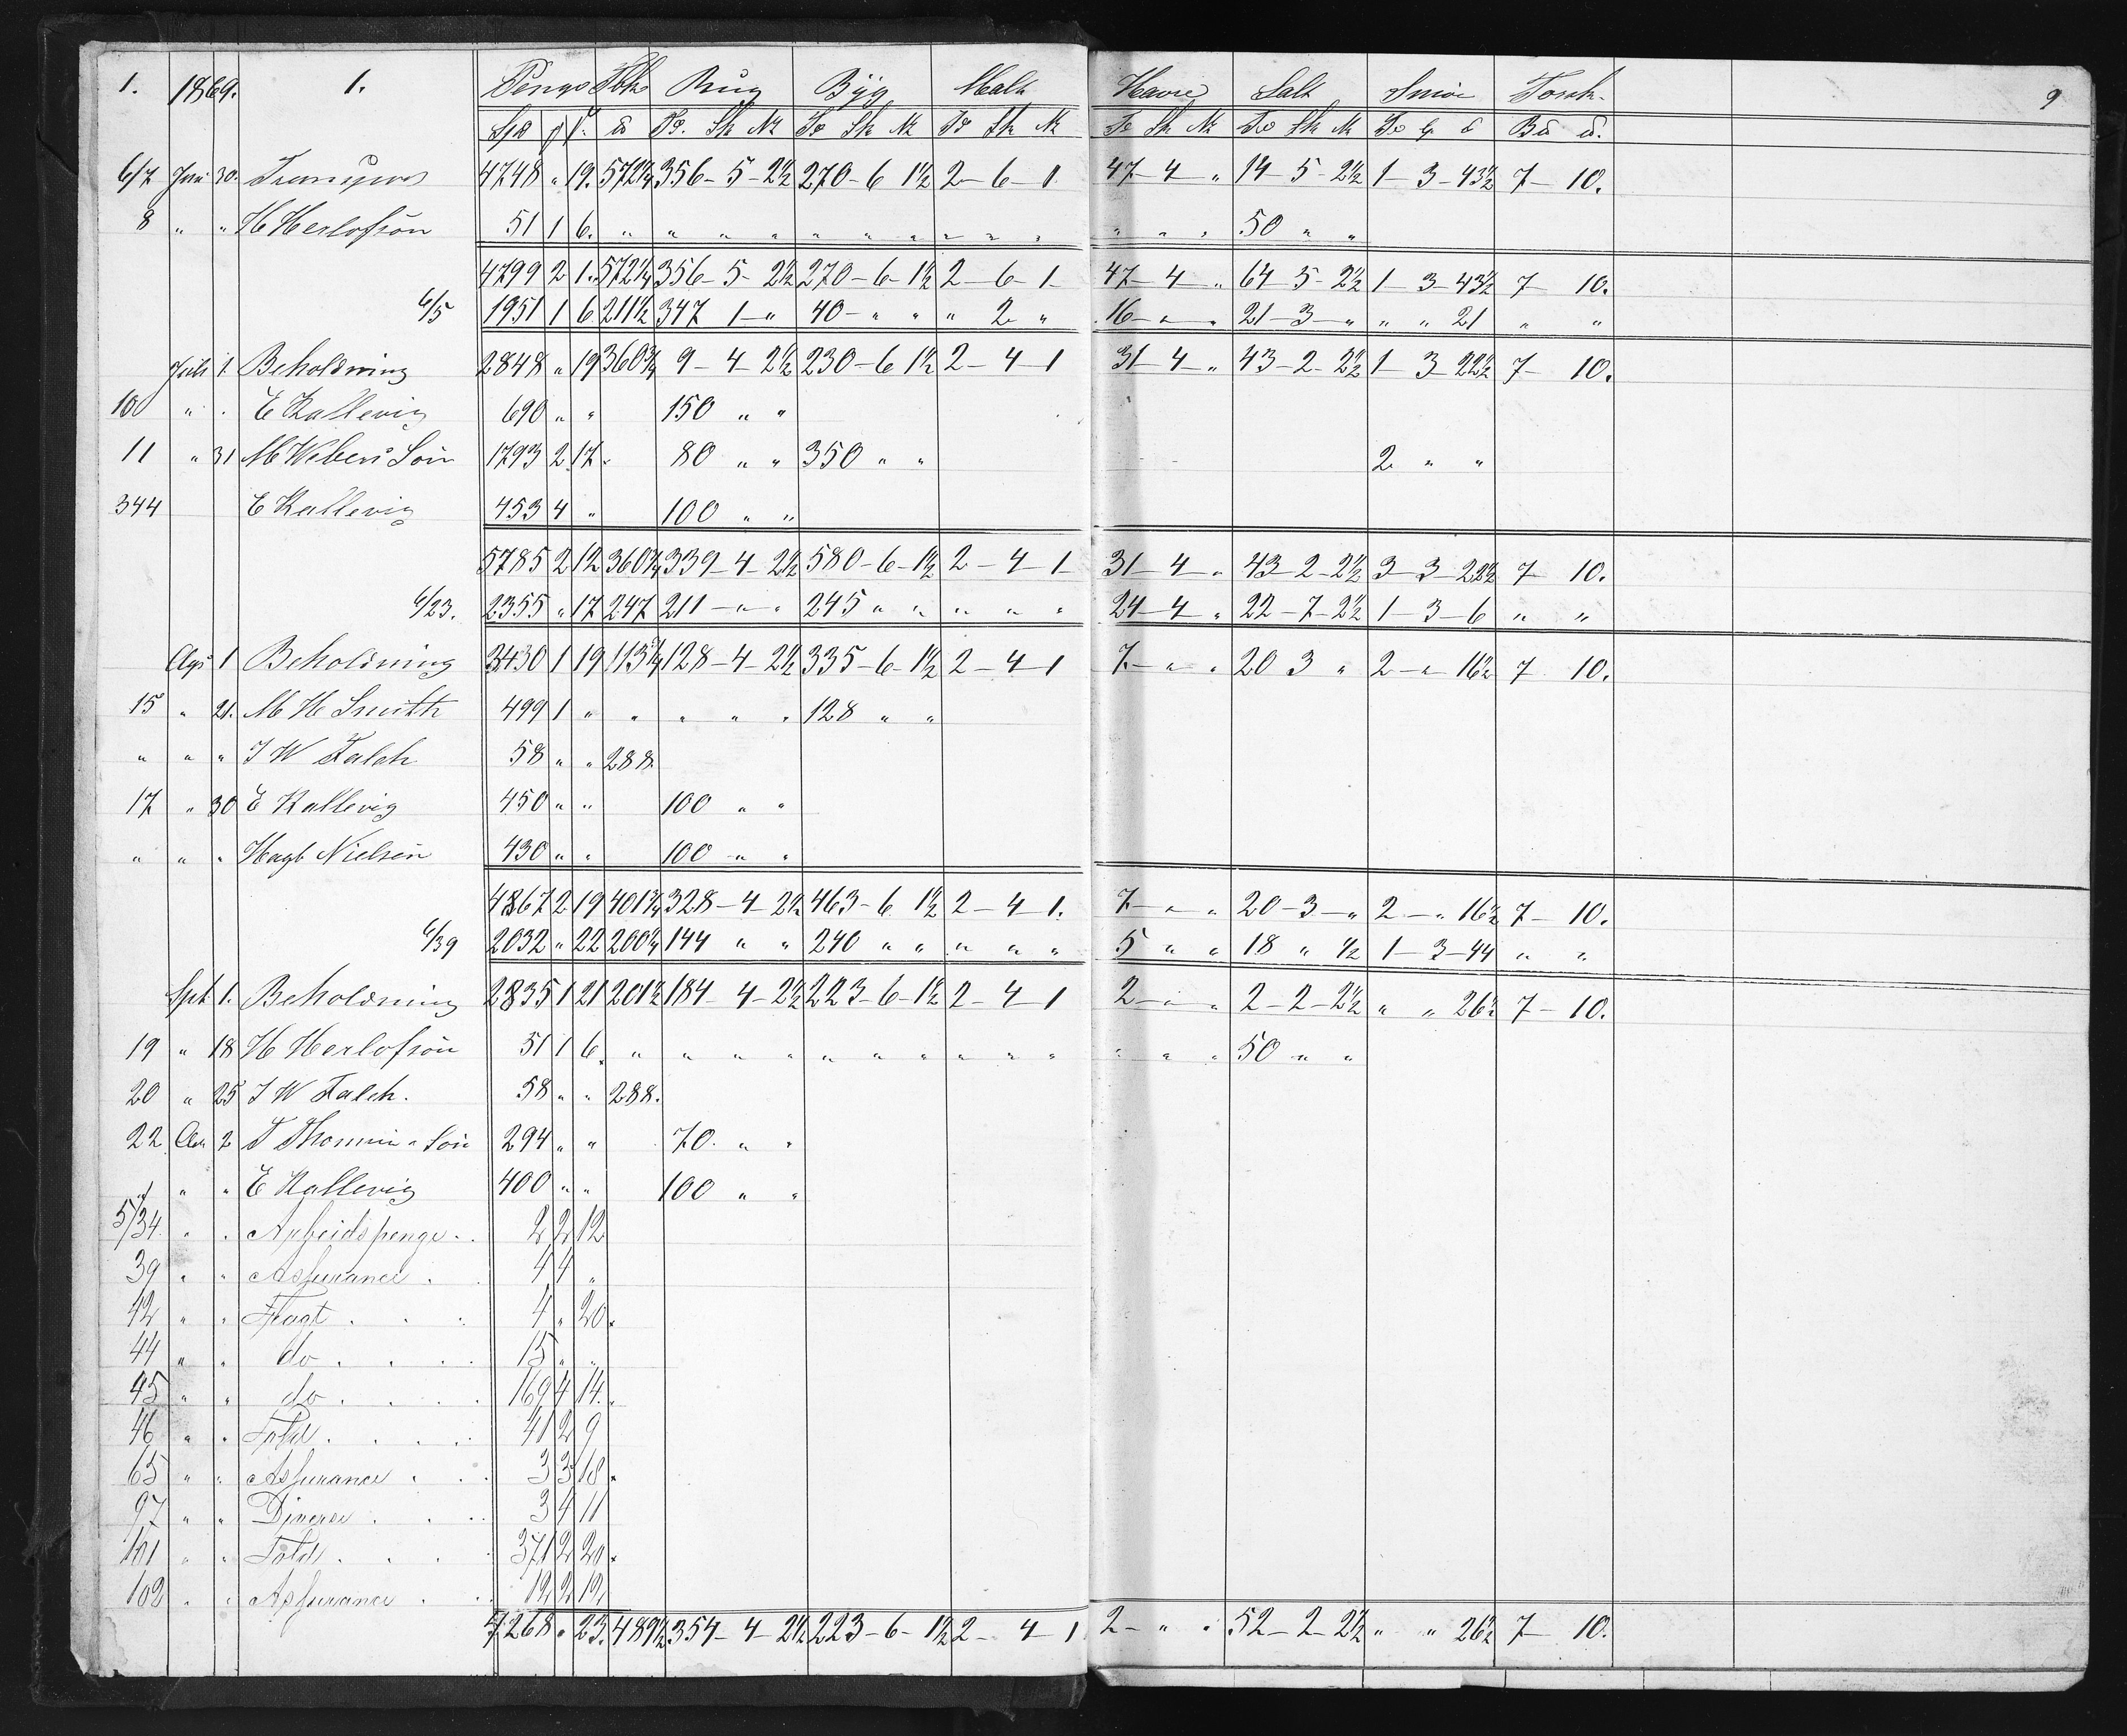 1. 1869. 1. Penge Tbk Rug Byg Malt Havre Salt Smör Torsk. 9
Spd ℔ To. Sk To Sk To Sk To Sk To Sk To
6/7 Juni 30. Transport 4748 " 19. 572 1/4 356-5-2 1/2 270-6 1 1/2 2-6-1 47-4-" 14-5-2 1/2 1-3-43 1/2 7-10.
8 " " H Herlofson 51 1 6. " " " " " " " " " " " " " 50 " "
4799 2 1. 572 1/4 356-5-2 1/2 270-6-1 1/2 2-6-1 47-4-" 64-5-2 1/2 1-3-43 1/2 7-10.
6/5 1951 1 6 211 1/2 347 1-" 40-" " " 2 " 16-" " 21-3-" " " 21 " "
Juli 1. Beholdning 2848 " 19 360 3/4 9-4-2 1/2 230-6 1 1/2 2-4-1 31-4-" 43-2-2 1/2 1-3-22 1/2 7-10.
10 " . E Kallevig 690 " " 150 " "
11 " 31 M Webers Sön 1793 2 17. 80 " " 350 " " 2 " "
344 E Kallevig 453 4 " 100 " "
5785 2 12 360 3/4 339-4-2 1/2 580-6-1 1/2 2-4-1 31-4-" 43-2-2 1/2 3-3-22 1/2 7-10.
6/23. 2355 " 17 247 211-" " 245 " " " " " 24-4 " 22-7-2 1/2 1-3-6 " "
Ags 1 Beholdning 3430 1 19 113 3/4 128-4-2 1/2 335-6-1 1/2 2-4-1 7-" " 20 3 " 2-"-16 1/2 7 10.
15 " 21. M H Smith 499 1 " " " " " 128 " "
" " " J W Falch 58 " " 288.
17 " 30 E Kallevig 450 " " 100 " "
" " " Hagb Nielsen 430 " " 100 " "
4867 2 19 401 3/4 328-4-2 1/2 463-6 1 1/2 2-4-1. 7-" " 20-3-" 2-" 16 1/2 7-10.
6/39 2032 " 22 200 1/4 144 " " 240 " " " " " 5 " " 18 " 1/2 1-3-44 " "
Spt 1. Beholdning 2835 1 21 201 1/2 184-4-2 1/2 223-6-1 1/2 2-4-1 2-" " 2-2-2 1/2 " " 26 1/2 7-10.
19 " 18 H Herlofson 51 1 6. " " " " " " " " " " " " " 50 " "
20 " 25 J W Falch. 58 " " 288.
22 2 Sön 294 " " 70. " "
" " " E Kallevig 400 " " 100 " "
5/34. " . Arbeidspenge. . 2 2 12
39 " " Assurance . . 4 4 "
42 " " Fragt . . . 4 " 20.
44 " " do . . . . 15 " "
45 " " do . . . . 169 4 14.
46 " " Told . . . . 41 2 9
65 " " Assurance . . . 3 3 18.
97 " " Diverse . . . 3 4 11
101 " " Told . . . . 371 2 20.
102 " " Assurance . . 12 2 12
4268 " 23. 489 1/2 354-4-2 1/2 223-6-1 1/2 2-4-1 2-" " 52-2-2 1/2 " " 26 1/2 7-10.